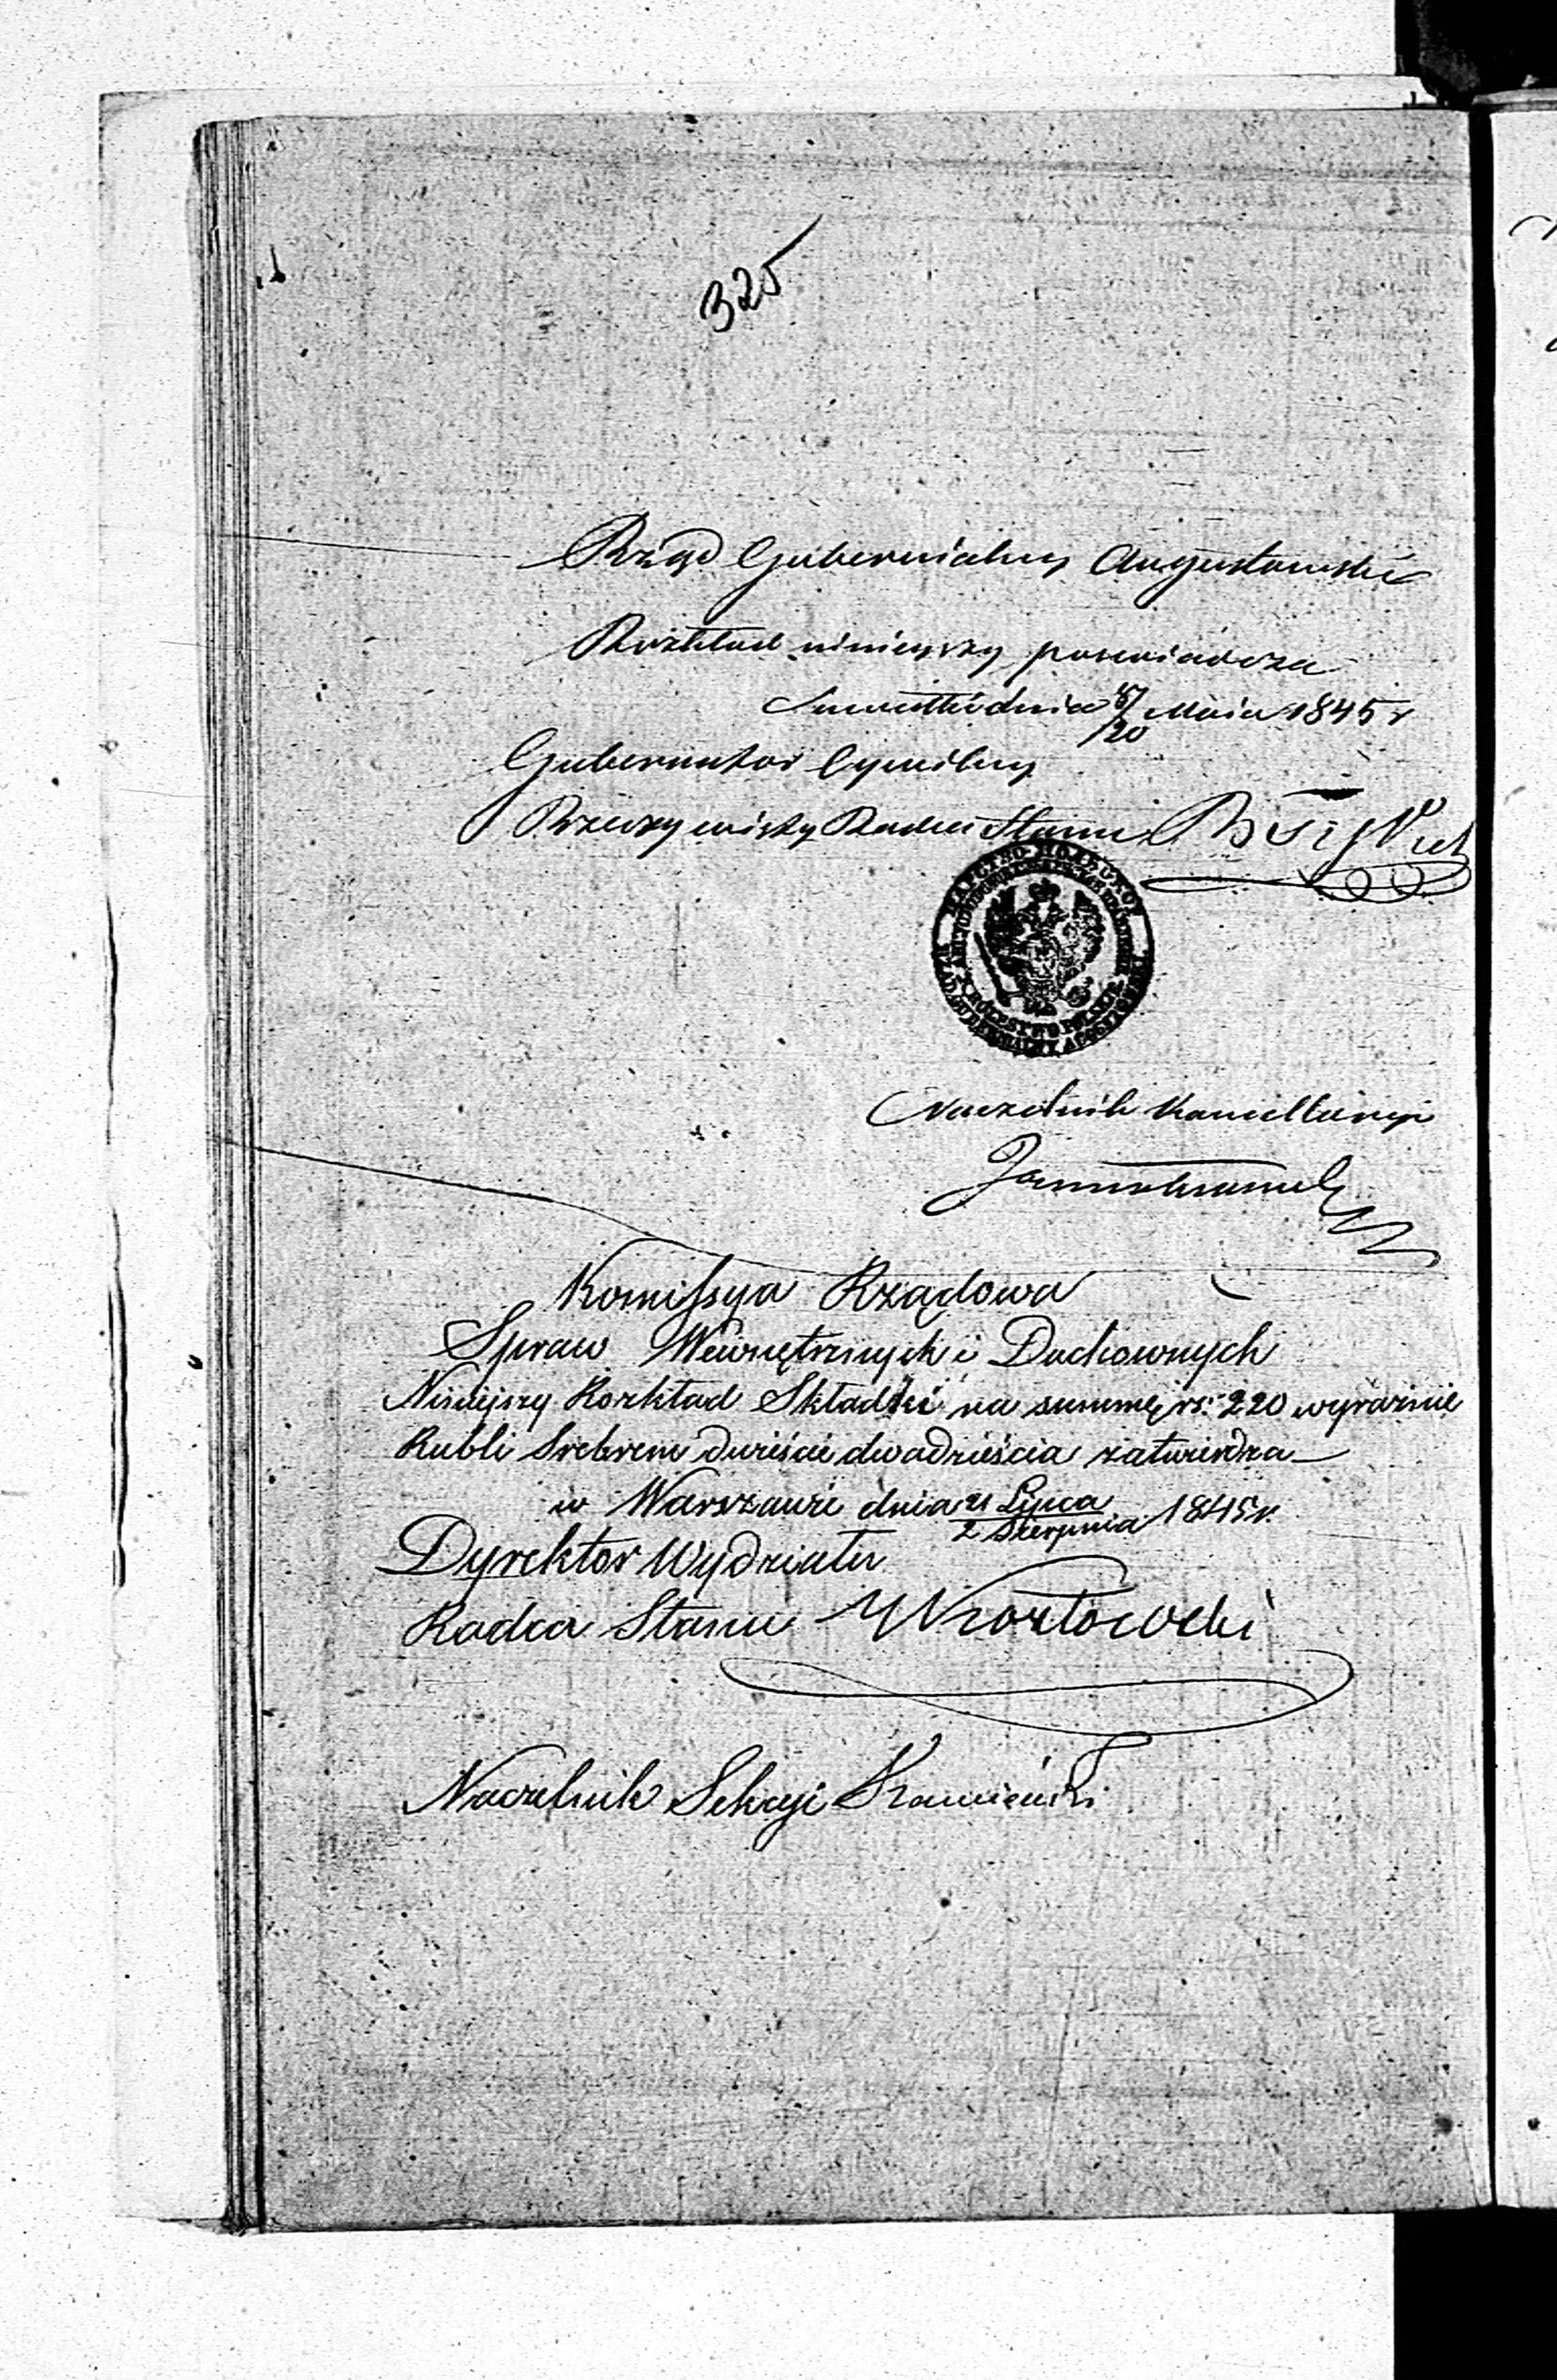 325
Rząd Gubernialny Augustowski
Rozkład niniejszy poświadcza
Suwałki dnia 8/20 Maia 1845 r
Gubernator Cywilny
Rzeczywisty Radca Stanu
ЦАРСТВО ПОЛЬСКОЕ
KRÓLESTWO POLSKIE
RZĄD GUBERNIALNY AUGUSTOWSKI
Naczelnik Kancellaryi
Komissya Rządowa
Spraw Wewnętrznych i Duchownych
Niniejszy Rozkład Składki na summę rs: 220 wyraźnie
Rubli Srebrem dwieście dwadzieścia zatwierdza
w Warszawie dnia 21 Lipca / 2 Sierpnia 1845 r.
Dyrektor Wydziału
Radca Stanu
Naczelnik Sekcyi Kamieński